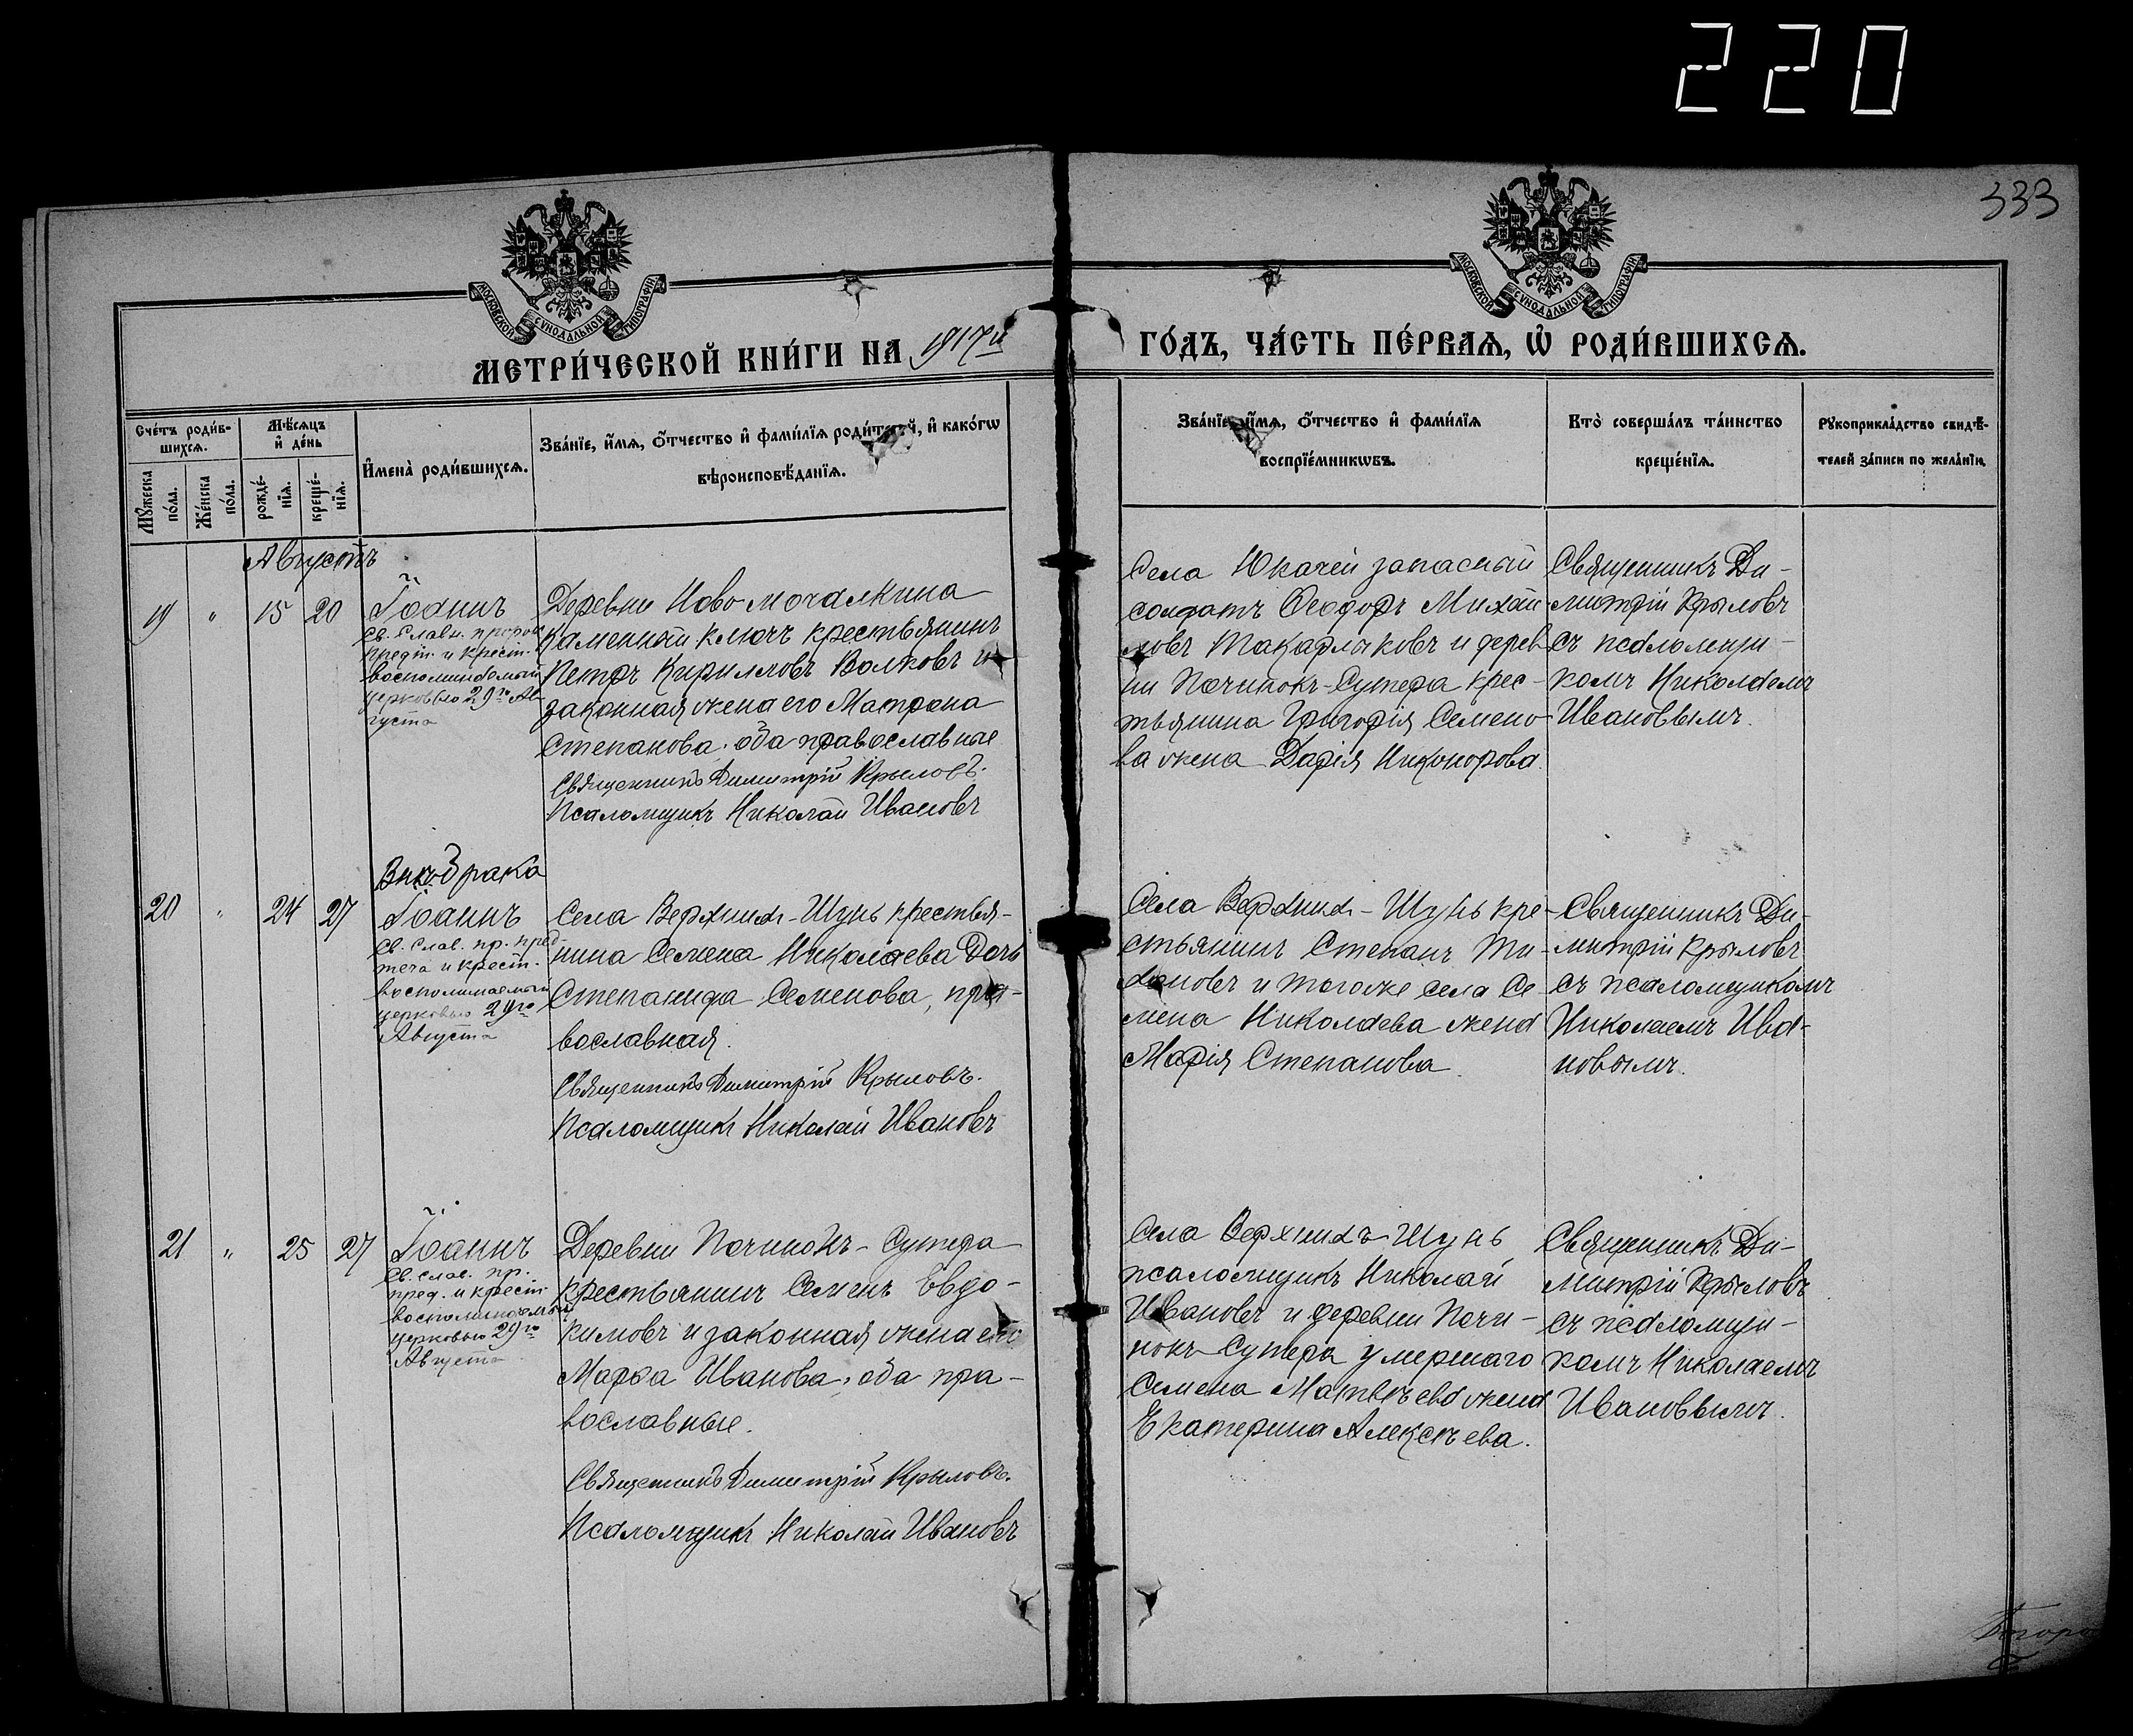 220
333
МОСКОВСКОЙ СѴНОДАЛЬНОЙ ТИПОГРАФІИ
МОСКОВСКОЙ СѴНОДАЛЬНОЙ ТИПОГРАФІИ
МЕТРИ́ЧЕСКОЙ КНИ́ГИ НА 1917й ГО́ДЪ, ЧА́СТЬ ПЕ́РВАѦ, Ѡ҆ РОДИ́ВШИХСѦ.
Сче́тъ роди́в-
шихсѧ.
Мꙋ́жеска по́ла.
Же́нска по́ла.
Мѣ́сѧцъ и҆ де́нь
рожде́-
нїѧ.
креще́-
нїѧ.
И҆мена̀ роди́вшихсѧ.
Зва́нїе, и҆́мѧ, ѻ҆́тчество и҆ фами́лїѧ роди́телей, и҆ како́гѡ
вѣроисповѣ́данїѧ.
Зва́нїе, и҆́мѧ, ѻ҆́тчество и҆ фами́лїѧ
воспрїе́мникѡвъ.
Кто̀ соверша́лъ та́инство
креще́нїѧ.
Рꙋкоприкла́дство свидѣ́-
телей за́писи по жела́нїю.
Августъ
19 " 15 20
Іоаннъ
Св. Славн. пророк
предт. и крест.
воспоминаемый
церковью 29го Ав-
густа
Деревни Ново Мочалкина
Каменный ключъ крестьянинъ
Петръ Кирилловъ Волковъ и
законная жена его Матрона
Степанова, оба православные
Священникъ Димитрій Крыловъ.
Псаломщикъ Николай Ивановъ
Села Юкачей запасный
солдатъ Ѳеодоръ Михай-
ловъ Макарлыковъ и дерев-
ни Починокъ-Сутера крес-
тьянина Григорія Семено-
ва жена Дарія Никонорова.
Священникъ Ди-
митрій Крыловъ
съ псаломщи-
комъ Николаемъ
Ивановымъ.
Внѣ брака
20 " 24 27
Іоаннъ
Св. Слав. пр. пред
теча и крест.
воспоминаемый
церковью 29го
Августа
Села Верхних-Шунь крестья-
нина Семена Николаева Дочь
Степанида Семенова, пра-
вославная.
Священникъ Димитрій Крыловъ.
Псаломщикъ Николай Ивановъ
Села Верхних-Шунь кре-
стьянинъ Степанъ Ти-
хановъ и тогоже села Се-
мена Николаева жена
Марія Степанова.
Священникъ Ди-
митрій Крыловъ
съ псаломщикомъ
Николаемъ Ива-
новымъ.
21 " 25 27
Іоаннъ
Св. Слав. пр.
пред. и крест
воспоминаемый
церковью 29го
Августа
Деревни Починокъ-Сутера
крестьянинъ Семенъ Евдо-
кимовъ и законная жена его
Марѳа Иванова, оба пра-
вославные.
Священникъ Димитрій Крыловъ.
Псаломщикъ Николай Ивановъ
Села Верхнихъ-Шунь
псаломщикъ Николай
Ивановъ и деревни Почи-
нокъ-Сутера умершаго
Семена Матвѣева жена
Екатерина Алексѣева.
Священникъ Ди-
митрій Крыловъ
съ псаломщи-
комъ Николаемъ
Ивановымъ.